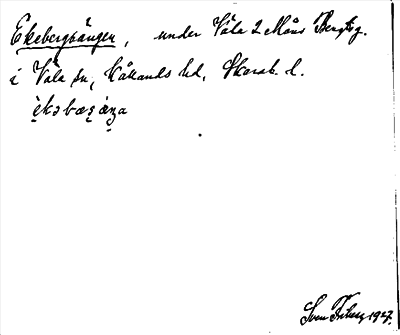 Ekebergsängen, under Våla 2 Måns Bengtsg.
i Våla sn, Kållands hd, Skarab. l.
èkəbæȥæ̀ŋa
Sven Friberg 1927.